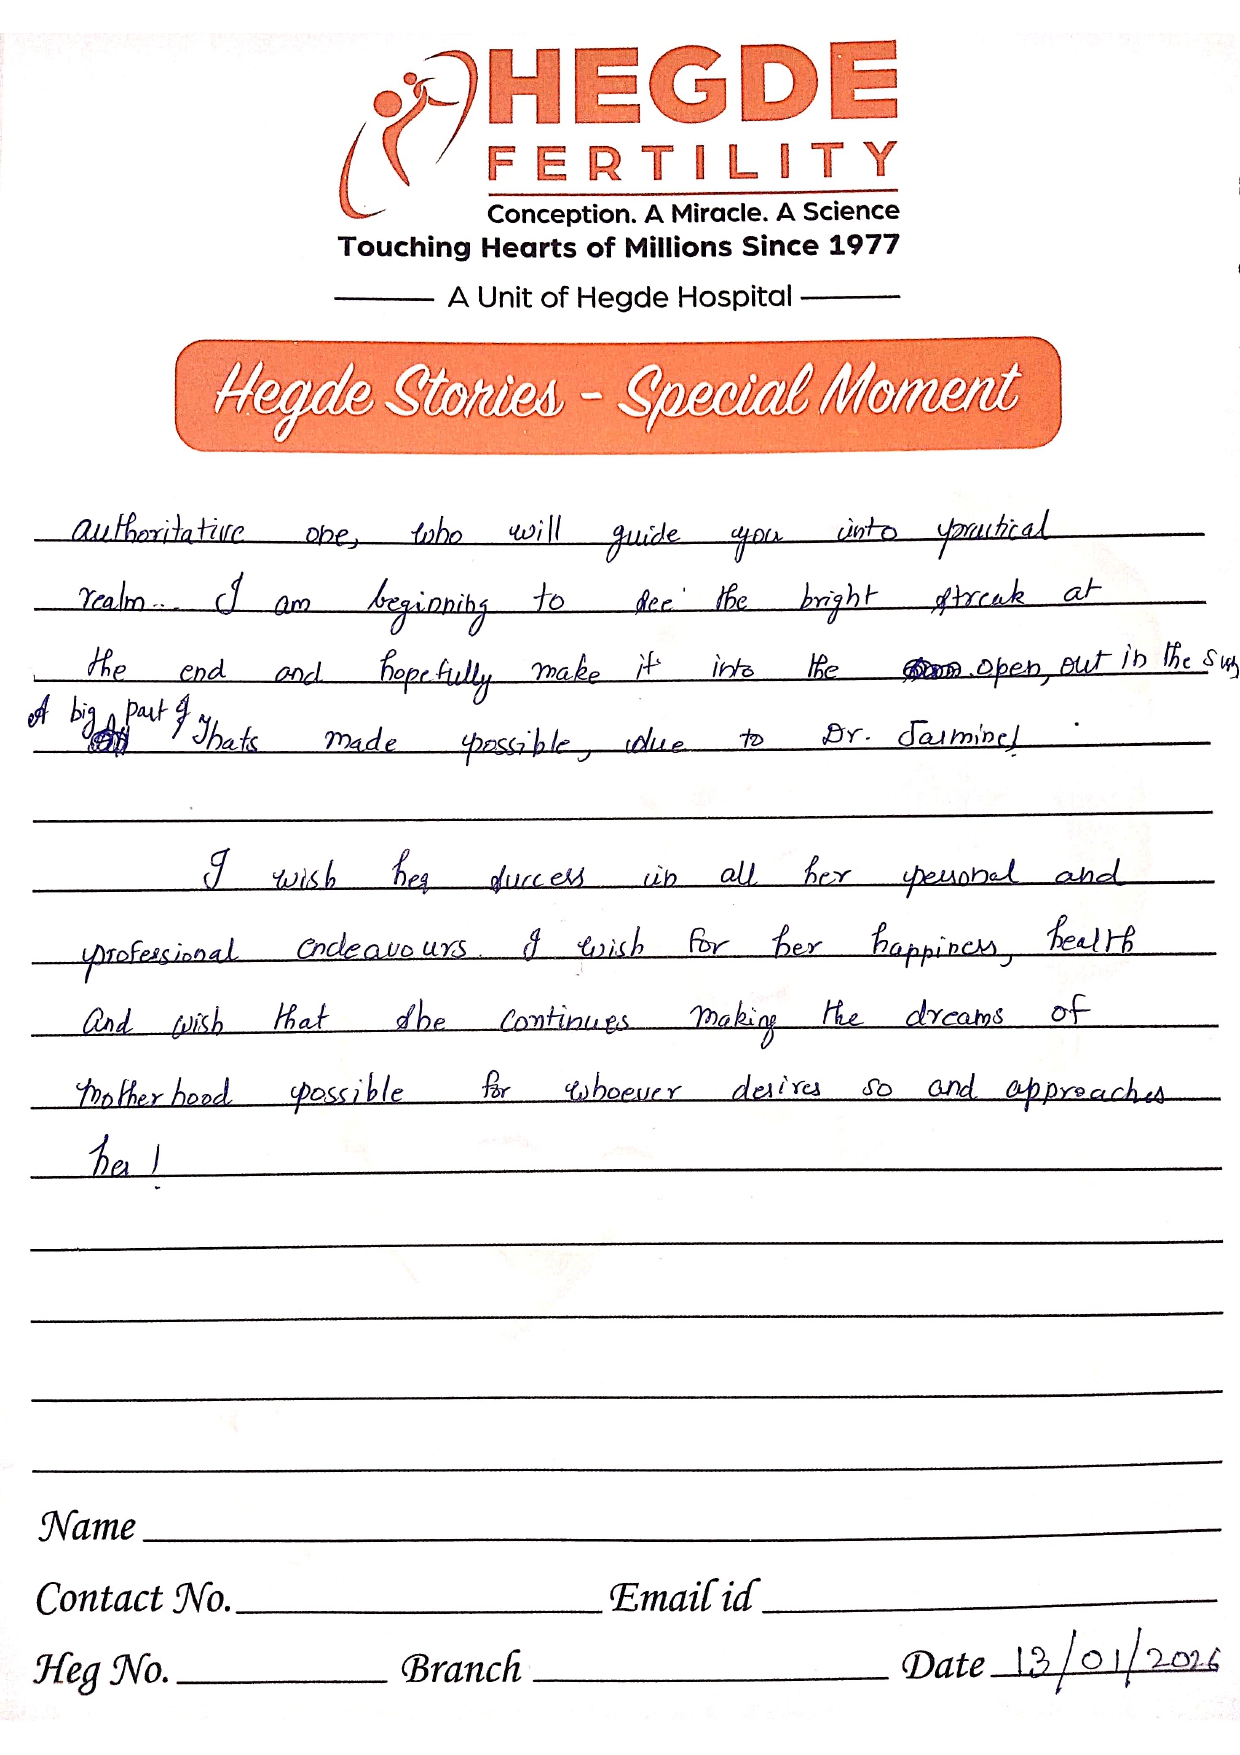 HEGDE
FERTILITY
Conception. A Miracle. A Science
Touching Hearts of Millions Since 1977
A Unit of Hegde Hospital
Hegde Stories - Special Moment
authoritative one, who will guide you into practical
realm... I am beginning to see the bright streak at
the end and hopefully make it into the open, out in the sun
A big part of
Thats made possible, due to Dr. Jasmine!
I wish her success in all her personal and
professional endeavours. I wish for her happiness, health
and wish that she continues making the dreams of
motherhood possible for whoever desires so and approaches
her!
Name
Contact No. Email id
Heg No. Branch Date 13/01/2026